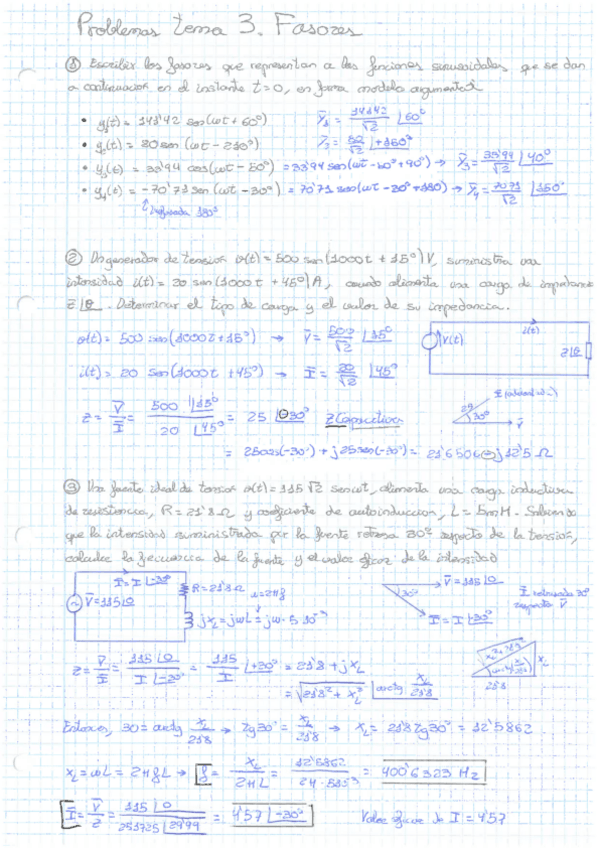 Problemas tema 3. Fasores
① Escribir los fasores que representan a las funciones sinusoidales que se dan
a continuación en el instante t=0, en forma modulo argumental
• y₁(t) = 141'42 sen(ωt + 60º) Ȳ₁ = 141'42/√2 ∟60º
• y₂(t) = 20 sen (ωt - 210º)
• y₃(t) = 33'94 cos(ωt - 50º) = 33'94 sen(ωt - 50º + 90º) → Ȳ₃ = 33'94/√2 ∟40º
• y₄(t) = -70'71 sen(ωt - 30º) = 70'71 sen(ωt - 30º + 180) → Ȳ₄ = 70'71/√2 ∟150º
② Un generador de tension v(t) = 500 sen(1000t + 15º)V, suministra una
intensidad i(t) = 20 sen(1000t + 45º)A, cuando alimenta una carga de impedancia
z∟θ. Determinar el tipo de carga y el valor de su impedancia.
v(t) = 500 sen(1000t + 15º) → V̄ = 500/√2 ∟15º
i(t)
V(t)
z∟θ
i(t) = 20 sen(1000t + 45º) → Ī = 20/√2 ∟45º
30º
V̄
z = V̄/Ī = 500∟15º / 20∟45º = 25∟-30º Z Capacitiva
= 25cos(-30º) + j25sen(-30º) = 21'6506 - j12'5 Ω
③ Una fuente ideal de tension v(t) = 115√2 senωt, alimenta una carga inductiva
de resistencia, R = 21'8 Ω y coeficiente de autoinduccion, L = 5mH. Sabiendo
que la intensidad suministrada por la fuente retrasa 30º respecto de la tension,
calcular la frecuencia de la fuente y el valor eficaz de la intensidad
Ī = I∟-30º
R = 21'8Ω
V̄ = 115∟0
jx_L = jωL = jω·5·10⁻³
30º
V̄ = 115∟0
Ī = I∟-30º
Ī retrasada 30º
respecto V̄
z = V̄/Ī = 115∟0 / I∟-30º = 115/I ∟+30º = 21'8 + jx_L
= √(21'8² + x_L²) ∟arctg x_L/21'8
x_L
21'8
Entonces, 30 = arctg x_L/21'8 → tg30º = x_L/21'8 → x_L = 21'8 tg30º = 12'5862
x_L = ωL = 2πfL → f = x_L/2πL = 12'5862/2π·5·10⁻³ = 400'6323 Hz
Ī = V̄/z = 115∟0 / 25'1725∟29'99 = 4'57∟-30º Valor eficaz de I = 4'57